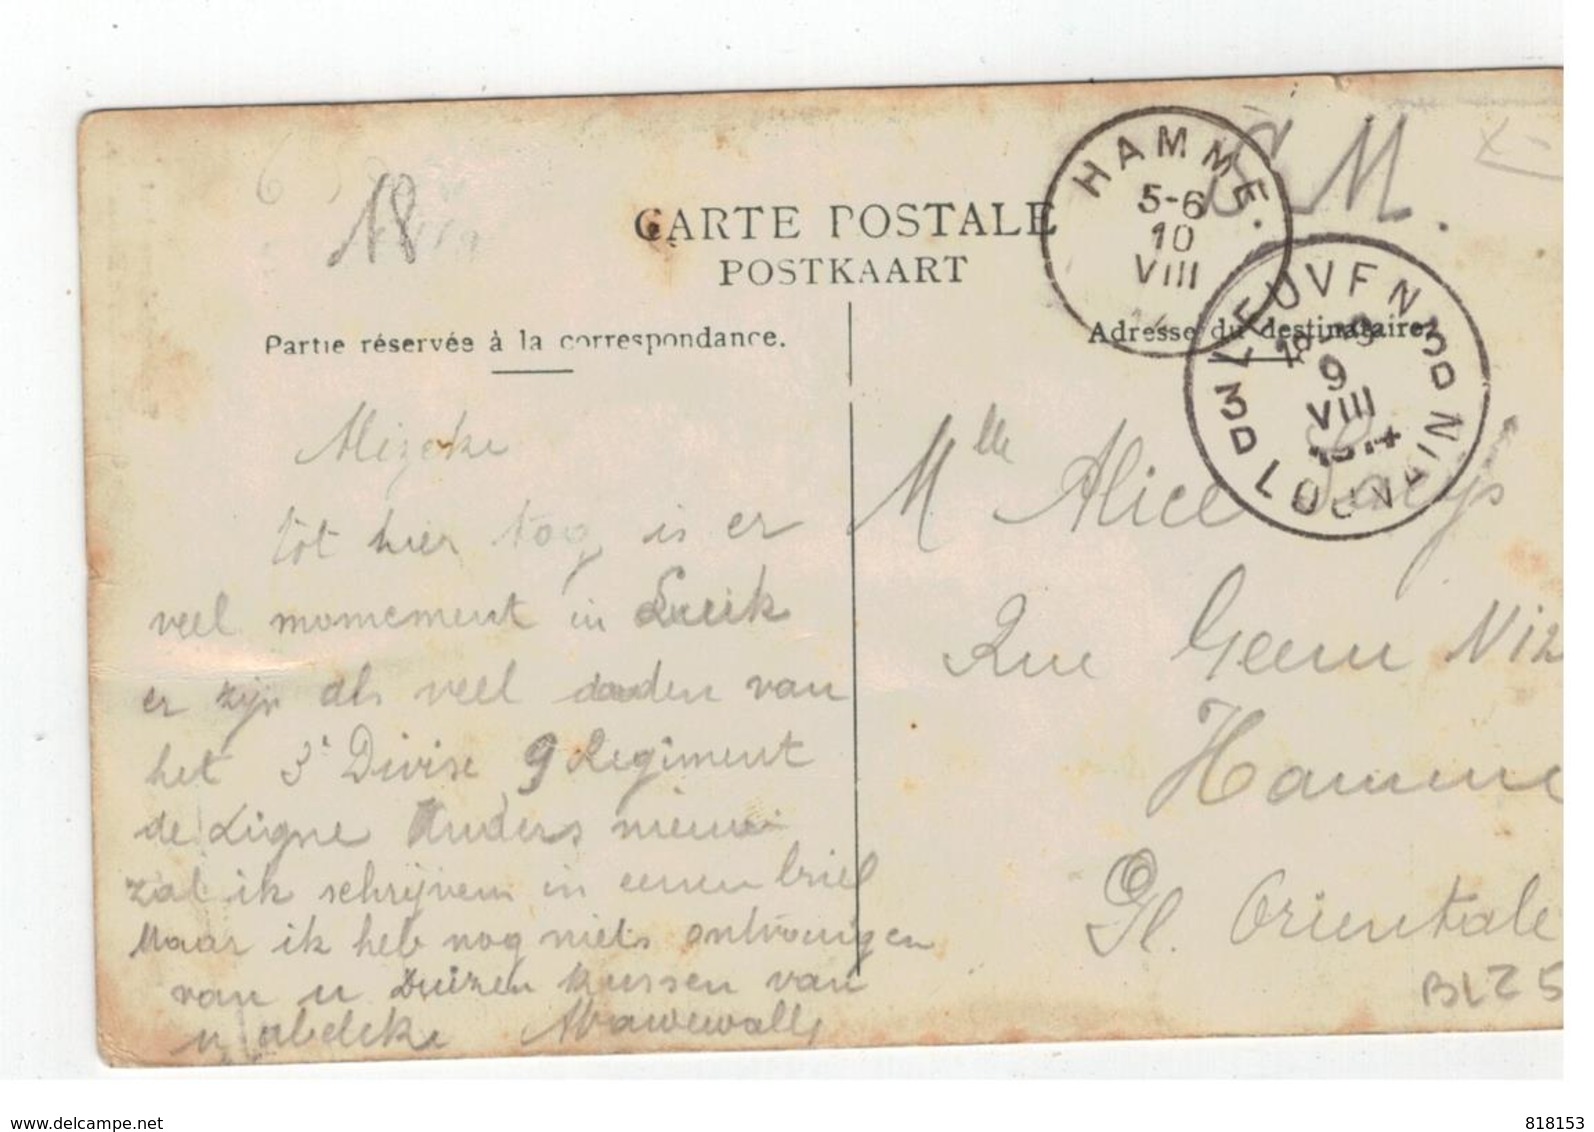 18
S.M.
CARTE POSTALE
POSTKAART
HAMME.
5-6
10
VIII
LEUVEN 3D
9
VIII
1914
3D LOUVAIN
Partie réservée à la correspondance.
Adresse du destinataire
Alizeke
tot hier tog is er
veel momement in Luik
er zijn als veel dooden van
het 3e Divise 9 Regiment
de Ligne Anders nieuw
zal ik schrijven in eenen brief
Maar ik heb nog niets ontvangen
van u Duizen kussen van
u abeleke
Mlle Alice
Rue Geem N12
Hamme
Fl. Orientale
BLZ5
www.delcampe.net
818153